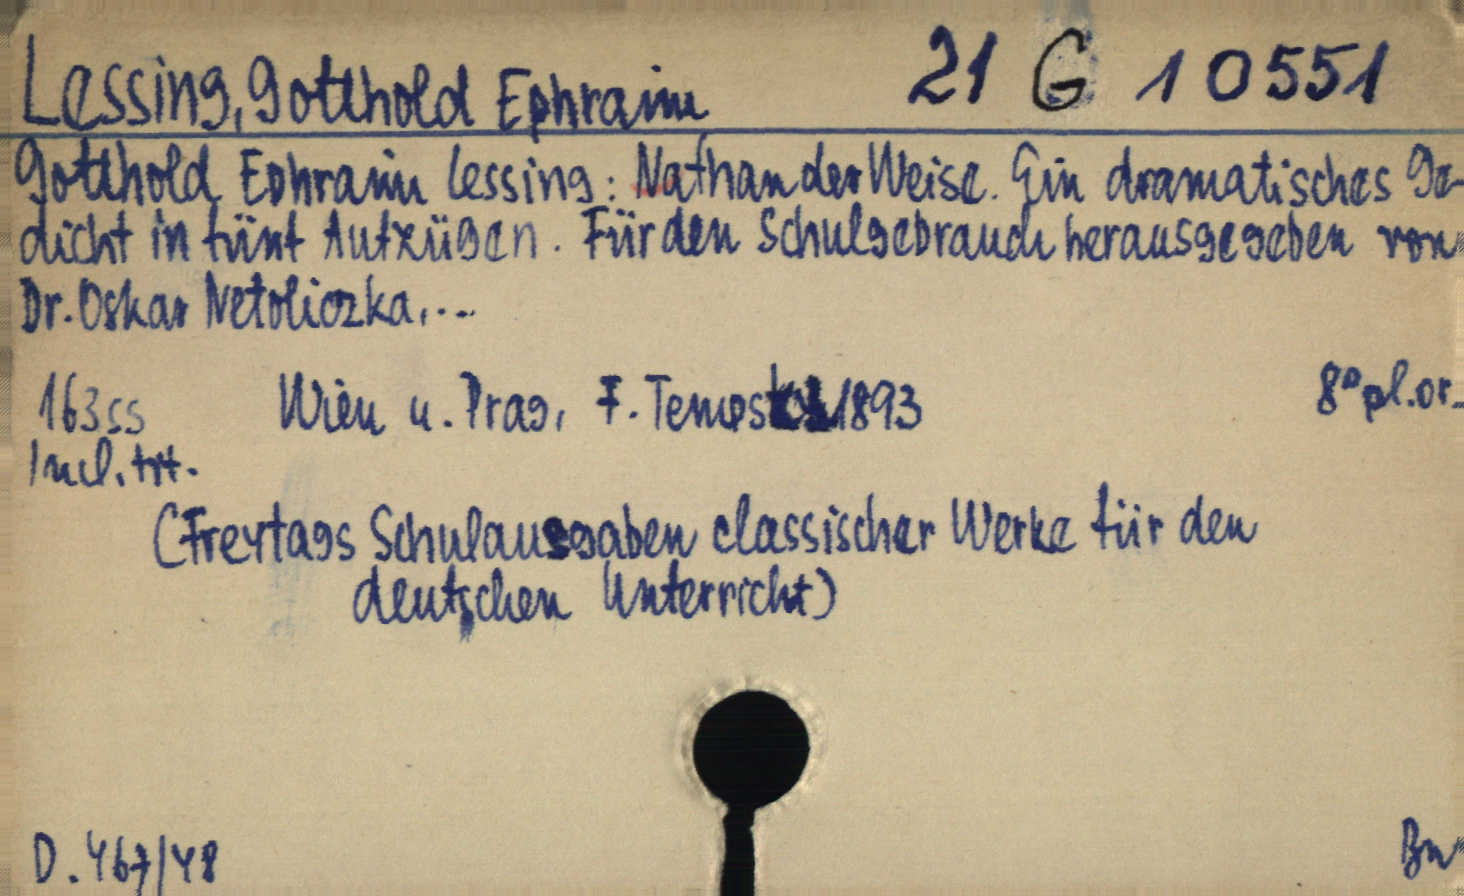 Lessing, Gotthold Ephraim 21 G 10551
Gotthold Ephraim Lessing: Nathan der Weise. Ein dramatisches Ge-
dicht in fünf Aufzügen. Für den Schulgebrauch herausgegeben von
Dr. Oskar Netoliczka,...
163 ss Wien u. Prag, F. Tempsky 1893 8° pl. or.
Incl. frt.
(Freytags Schulausgaben classischer Werke für den
deutschen Unterricht)
D. 467/48 Bn